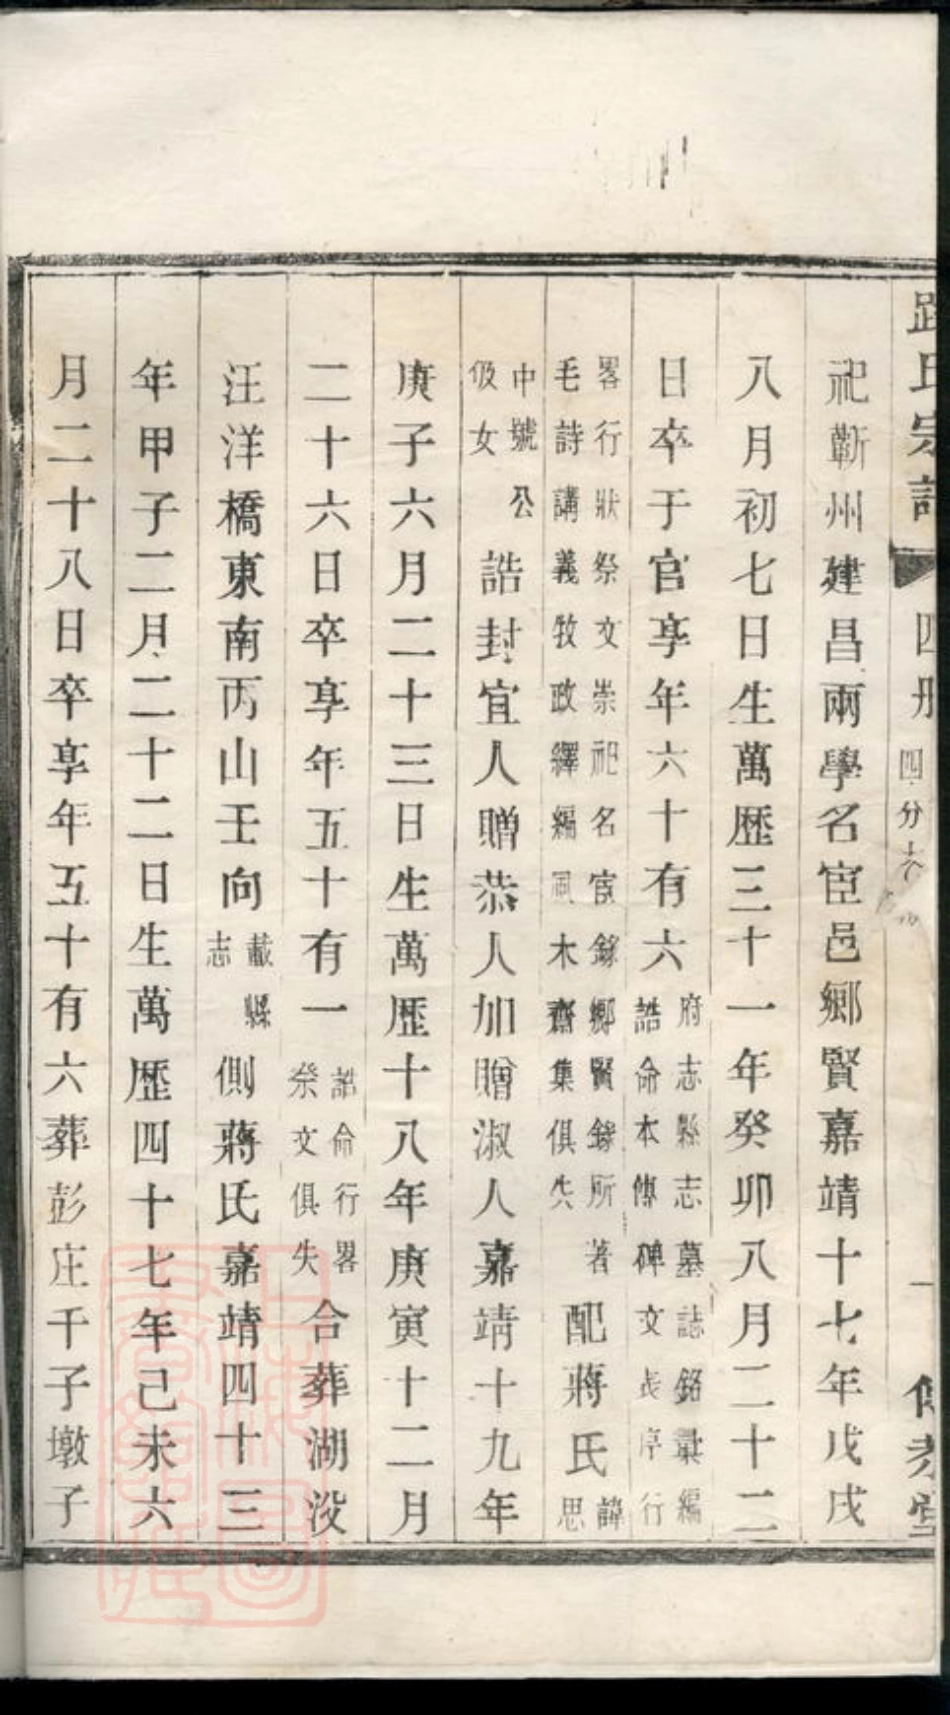 氏宗譜 四册 四分
祀蘄州建昌兩學名宦邑鄉賢嘉靖十七年戊戌
八月初七日生萬歷三十一年癸卯八月二十二
日卒于官享年六十有六
府志縣志墓誌銘彙編
誥命本傳碑文長序行
畧行狀祭文崇祀名宦錄鄉賢錄所著
毛詩講義牧政繹編風木齋集俱失
配蔣氏
諱思
中號公
伋女
誥封宜人贈恭人加贈淑人嘉靖十九年
庚子六月二十三日生萬歷十八年庚寅十二月
二十六日卒享年五十有一
誥命行畧
祭文俱失
合葬湖㳇
汪洋橋東南丙山壬向
載縣
志
側蔣氏嘉靖四十三
年甲子二月二十二日生萬歷四十七年己未六
月二十八日卒享年五十有六葬彭庄千子墩子